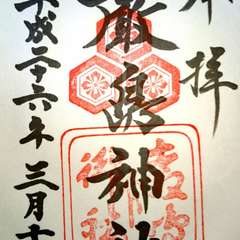 奉拝
嚴島神社
平成二十六年三月十